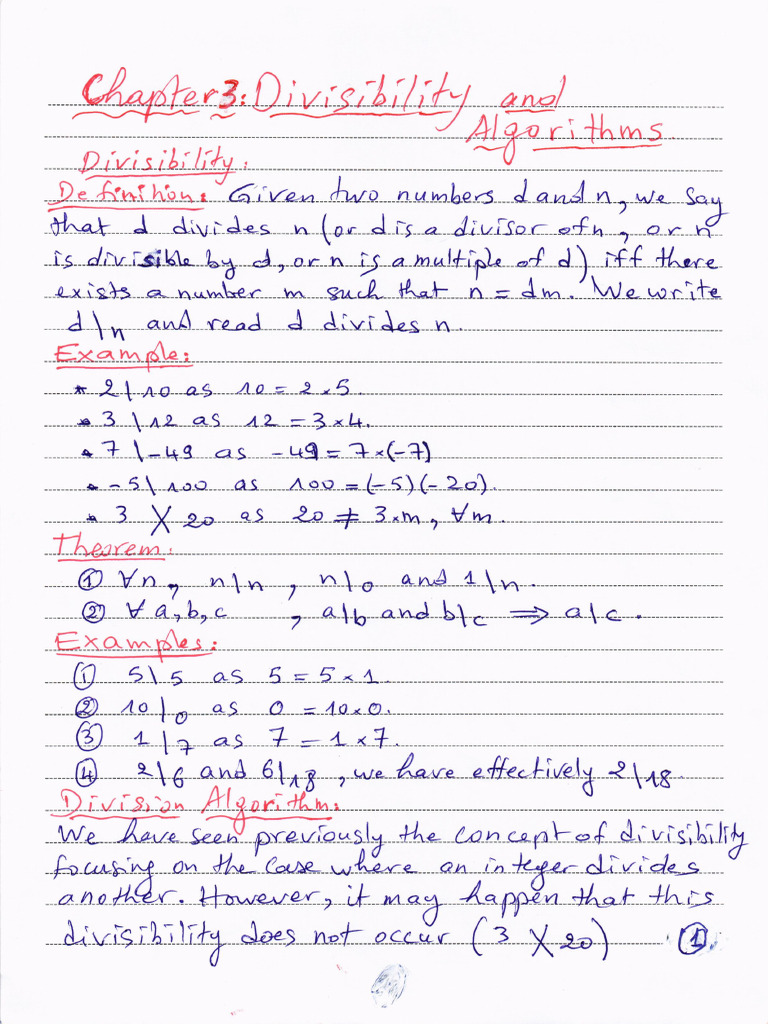 Chapter 3: Divisibility and
Algorithms
Divisibility:
Definition: Given two numbers d and n, we say
that d divides n (or d is a divisor of n, or n
is divisible by d, or n is a multiple of d) iff there
exists a number m such that n = dm. We write
d\n and read d divides n.
Example:
* 2\10 as 10 = 2×5.
* 3\12 as 12 = 3×4.
* 7\-49 as -49 = 7×(-7)
* -5\100 as 100 = (-5)(-20).
* 3 ∤ 20 as 20 ≠ 3×m, ∀m.
Theorem:
① ∀n, n\n, n\0 and 1\n.
② ∀a,b,c , a\b and b\c ⟹ a\c.
Examples:
① 5\5 as 5 = 5×1.
② 10\0 as 0 = 10×0.
③ 1\7 as 7 = 1×7.
④ 2\6 and 6\18, we have effectively 2\18.
Division Algorithm:
We have seen previously the concept of divisibility
focusing on the case where an integer divides
another. However, it may happen that this
divisibility does not occur (3 ∤ 20) ①